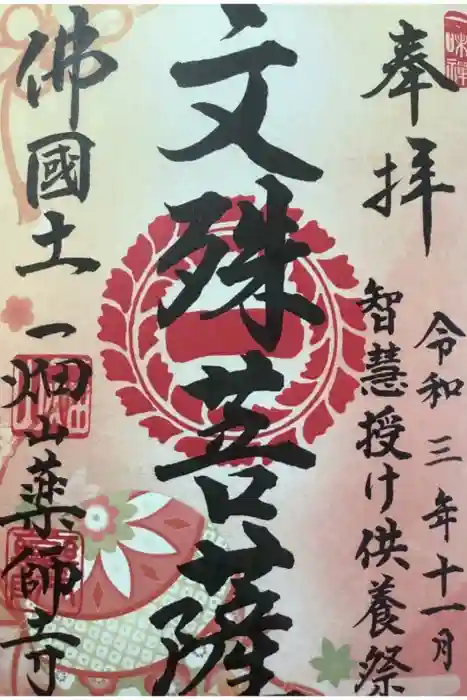 一味禅
奉拝
令和三年十一月
智慧授け供養祭
文殊菩薩
佛國土
一畑山薬師寺